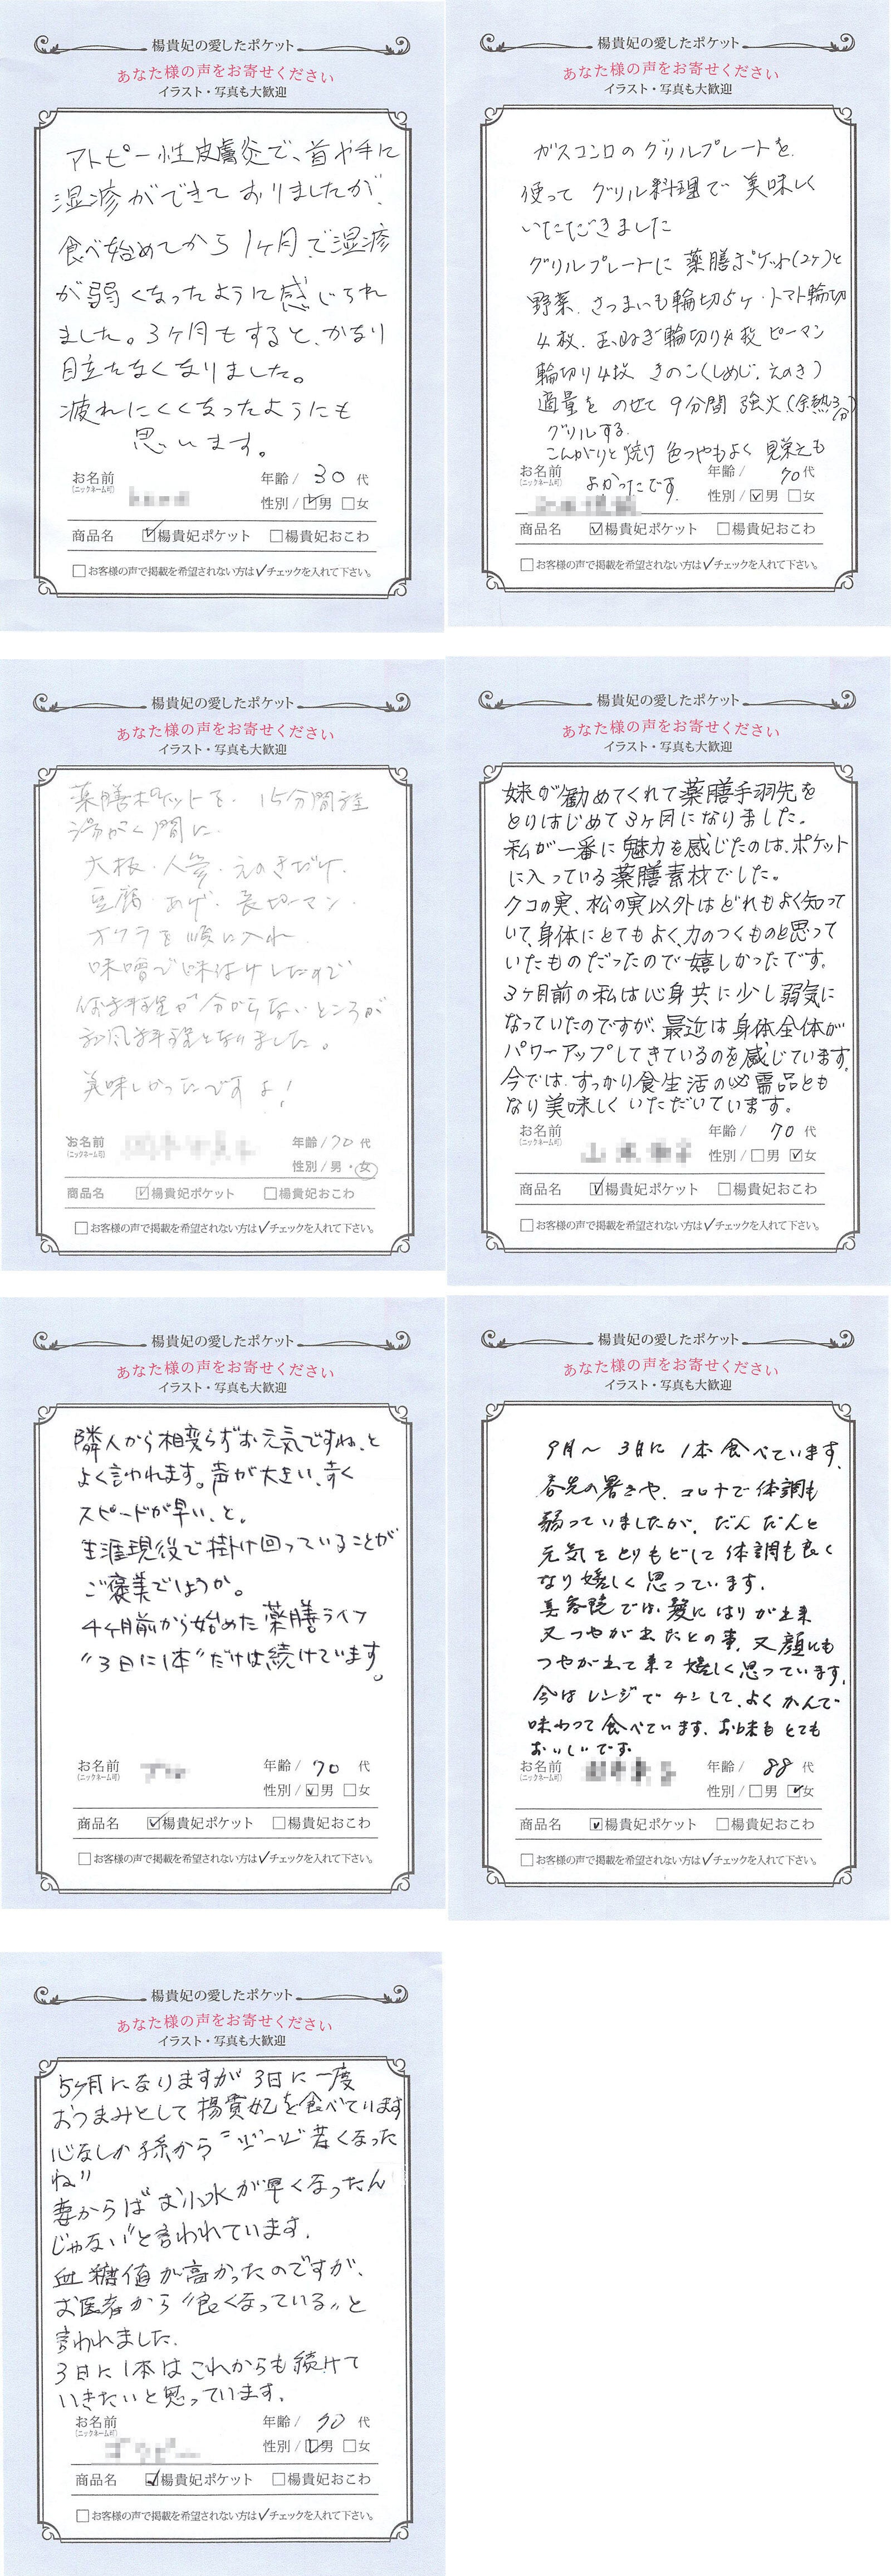 楊貴妃の愛したポケット
あなた様の声をお寄せください
イラスト・写真も大歓迎
アトピー性皮膚炎で、首や手に
湿疹ができておりましたが、
食べ始めてから1ヶ月で湿疹
が弱くなったように感じられ
ました。3ヶ月もすると、かなり
目立たなくなりました。
疲れにくくなったようにも
思います。
お名前
(ニックネーム可)
年齢/30代
性別/☑男 □女
商品名 ☑楊貴妃ポケット □楊貴妃おこわ
□お客様の声で掲載を希望されない方は✓チェックを入れて下さい。
楊貴妃の愛したポケット
あなた様の声をお寄せください
イラスト・写真も大歓迎
ガスコンロのグリルプレートを
使って グリル料理で 美味しく
いただきました
グリルプレートに 薬膳ポケット(2ヶ)と
野菜、さつまいも輪切5ヶ・トマト輪切
4枚、玉ねぎ輪切り4枚 ピーマン
輪切り4枚 きのこ(しめじ、えのき)
適量を のせて 9分間 強火(余熱3分)
グリルする。
こんがりと焼け 色つやもよく 見栄えも
よかったです。
お名前
(ニックネーム可)
年齢/70代
性別/☑男 □女
商品名 ☑楊貴妃ポケット □楊貴妃おこわ
□お客様の声で掲載を希望されない方は✓チェックを入れて下さい。
楊貴妃の愛したポケット
あなた様の声をお寄せください
イラスト・写真も大歓迎
薬膳ポケットを、15分間
間に
大根・人参・えのきだけ、
豆腐・あげ・長ピーマン・
オクラを順に入れ
味噌で味付けしたので
料理か分からないところが
和風料理となりました。
美味しかったですよ!
お名前
(ニックネーム可)
年齢/70代
性別/男・女
商品名 ☑楊貴妃ポケット □楊貴妃おこわ
□お客様の声で掲載を希望されない方は✓チェックを入れて下さい。
楊貴妃の愛したポケット
あなた様の声をお寄せください
イラスト・写真も大歓迎
妹が勧めてくれて薬膳手羽先を
とりはじめて3ヶ月になりました。
私が一番に魅力を感じたのは、ポケット
に入っている薬膳素材でした。
クコの実、松の実以外はどれもよく知って
いて、身体にとてもよく、力のつくものと思って
いたものだったので嬉しかったです。
3ヶ月前の私は心身共に少し弱気に
なっていたのですが、最近は身体全体が
パワーアップしてきているのを感じています。
今では、すっかり食生活の必需品とも
なり美味しくいただいています。
お名前
(ニックネーム可)
年齢/70代
性別/□男 ☑女
商品名 ☑楊貴妃ポケット □楊貴妃おこわ
□お客様の声で掲載を希望されない方は✓チェックを入れて下さい。
楊貴妃の愛したポケット
あなた様の声をお寄せください
イラスト・写真も大歓迎
隣人から相変らずお元気ですね、と
よく言われます。声が大きい、歩く
スピードが早い、と。
生涯現役で掛け回っていることが
ご褒美でしょうか。
4ヶ月前から始めた薬膳ライフ
"3日に1本"だけは続けています。
お名前
(ニックネーム可)
年齢/70代
性別/☑男 □女
商品名 ☑楊貴妃ポケット □楊貴妃おこわ
□お客様の声で掲載を希望されない方は✓チェックを入れて下さい。
楊貴妃の愛したポケット
あなた様の声をお寄せください
イラスト・写真も大歓迎
9月〜 3日に 1本食べています。
春先の暑さや、コロナで体調も
弱っていましたが、だんだんと
元気をとりもどして体調も良く
なり嬉しく思っています。
美容院では、髪にはりが出来
又つやが出たとの事、又顔にも
つやが出て来て嬉しく思っています。
今はレンジでチンして、よくかんで
味わって食べています。お味もとても
おいしいです。
お名前
(ニックネーム可)
年齢/88代
性別/□男 ☑女
商品名 ☑楊貴妃ポケット □楊貴妃おこわ
□お客様の声で掲載を希望されない方は✓チェックを入れて下さい。
楊貴妃の愛したポケット
あなた様の声をお寄せください
イラスト・写真も大歓迎
5ヶ月になりますが3日に一度
おつまみとして楊貴妃を食べています
心なしか孫から"ジージ若くなった
ね"
妻からは"お小水が早くなったん
じゃない"と言われています。
血糖値が高かったのですが、
お医者から"良くなっている"と
言われました。
3日に1本はこれからも続けて
いきたいと思っています。
お名前
(ニックネーム可)
年齢/70代
性別/☑男 □女
商品名 ☑楊貴妃ポケット □楊貴妃おこわ
□お客様の声で掲載を希望されない方は✓チェックを入れて下さい。